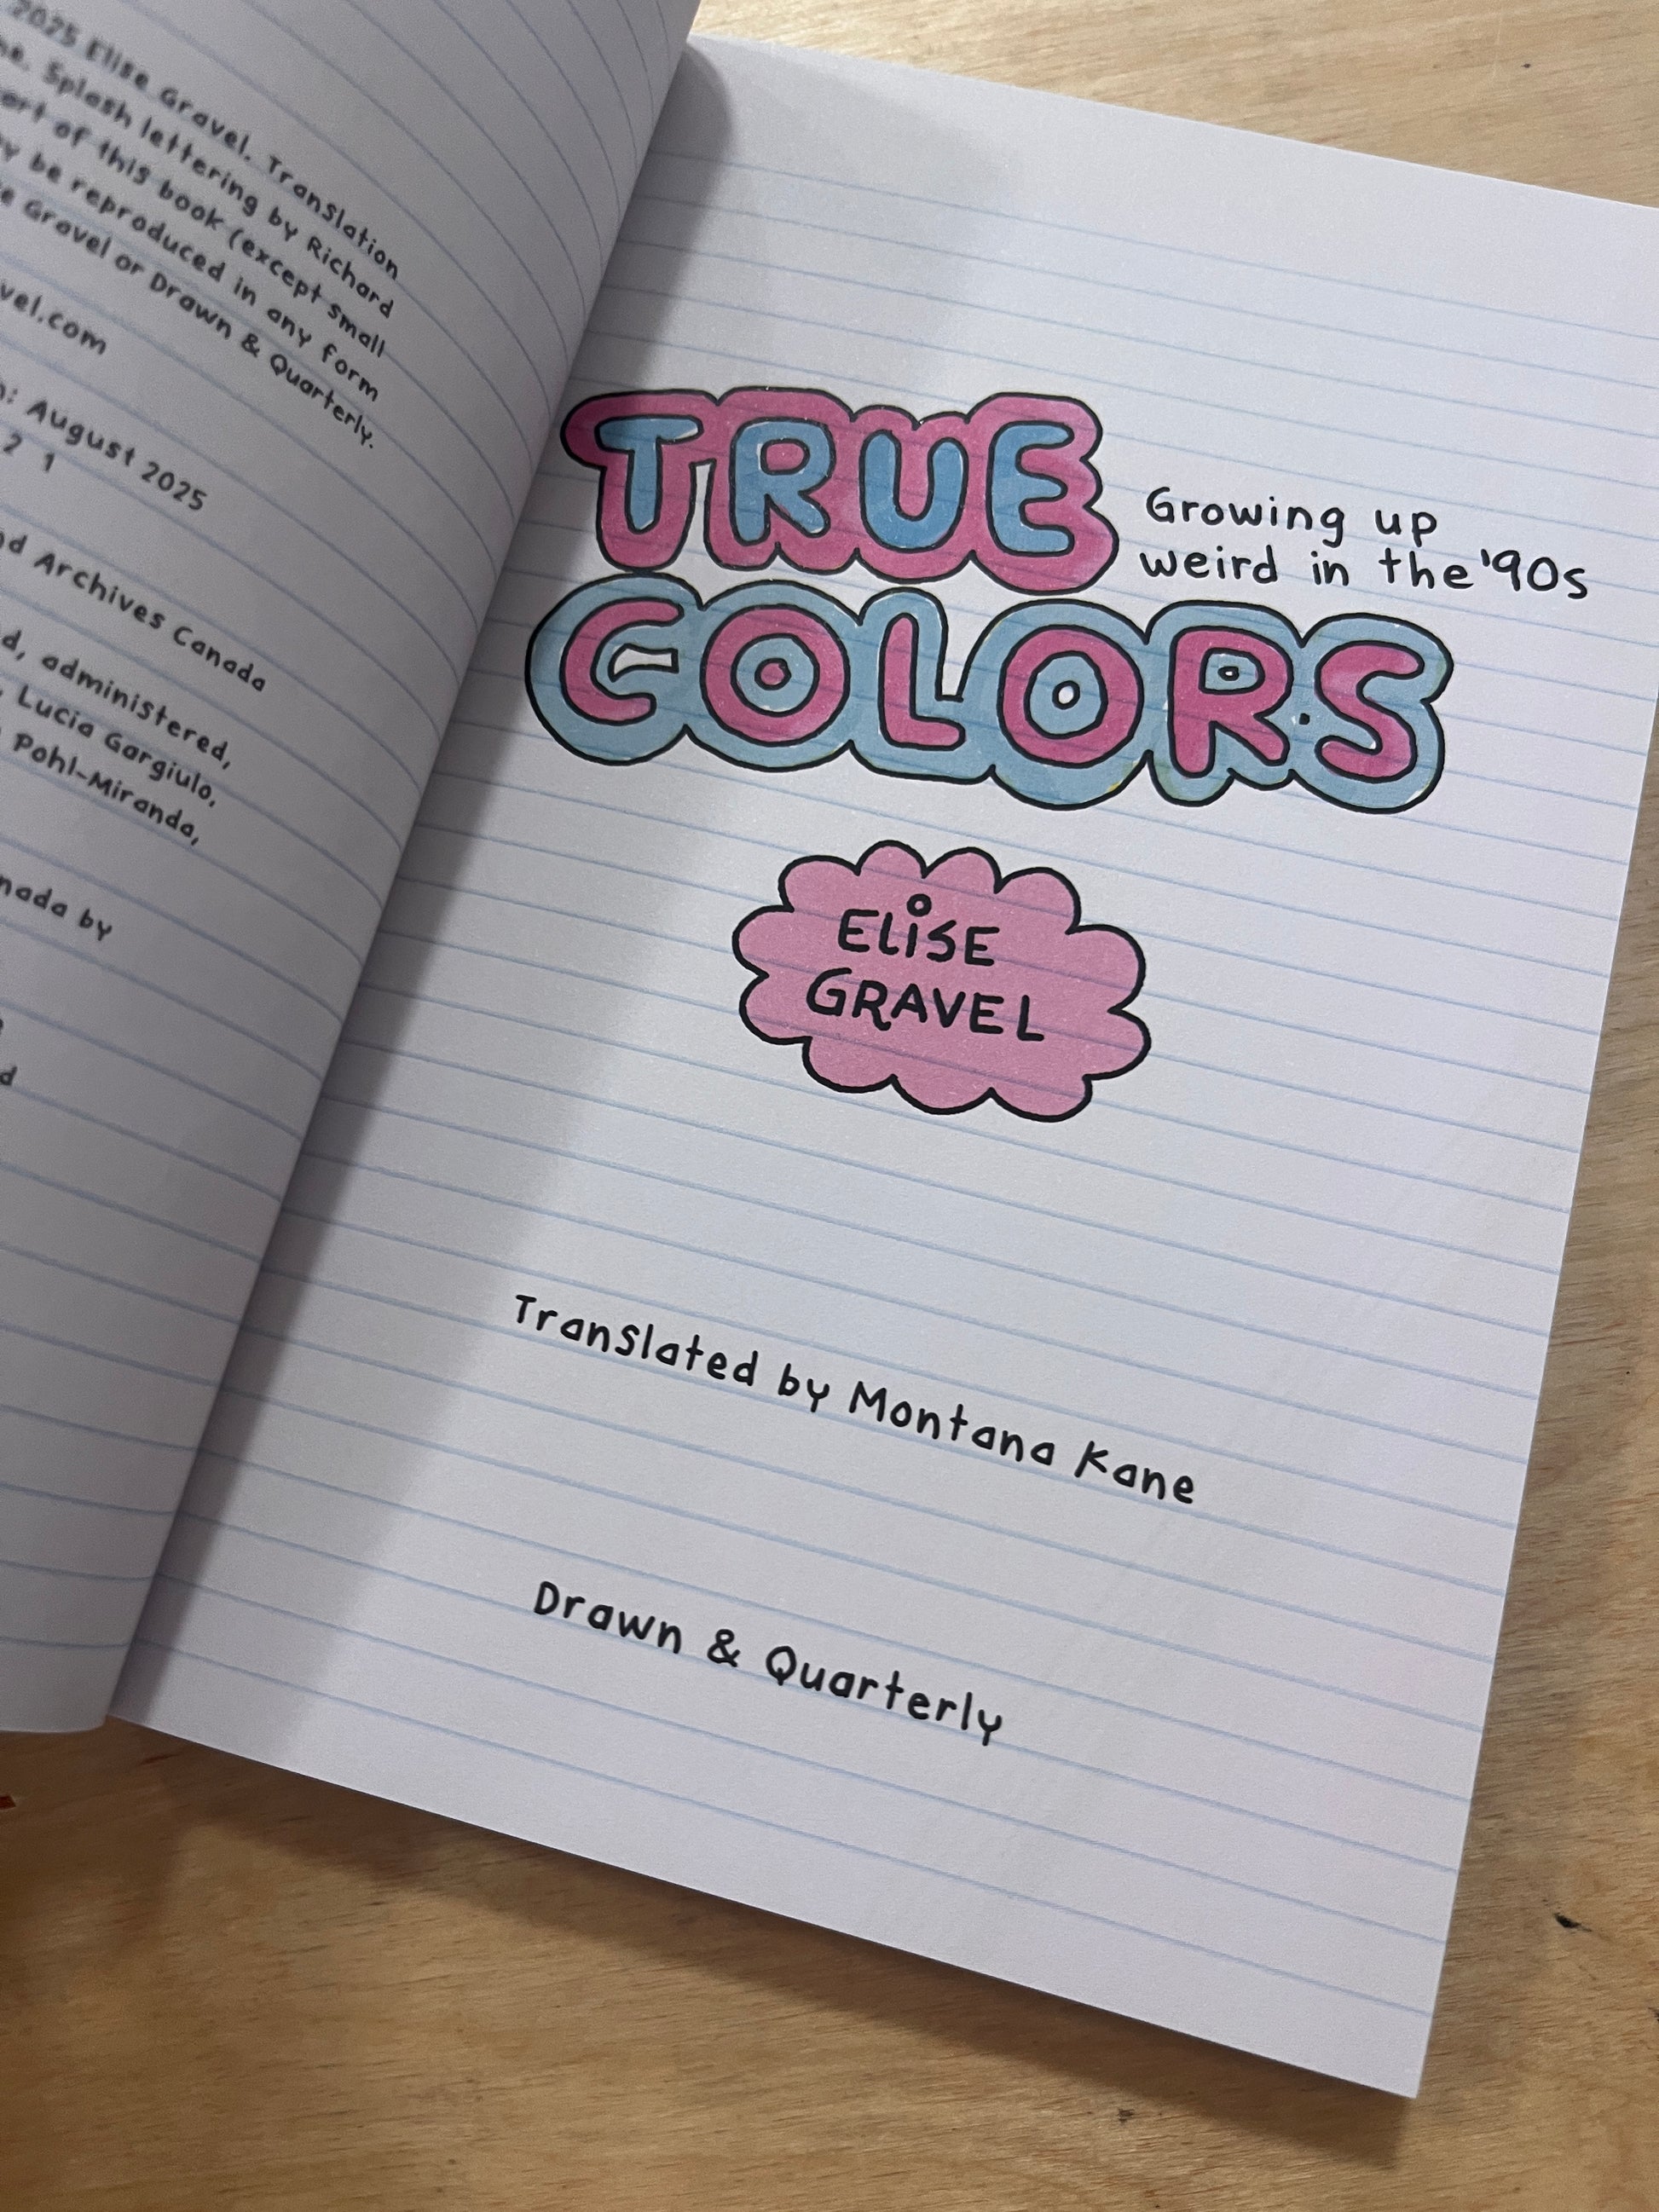 2025 Elise Gravel. Translation
Splash lettering by Richard
of this book (except small
be reproduced in any form
Gravel or Drawn & Quarterly.
August 2025
2 1
Archives Canada
administered,
Lucia Gargiulo,
Pohl-Miranda,
by
TRUE
COLORS
Growing up
weird in the '90s
ELiSE
GRAVEL
Translated by Montana Kane
Drawn & Quarterly